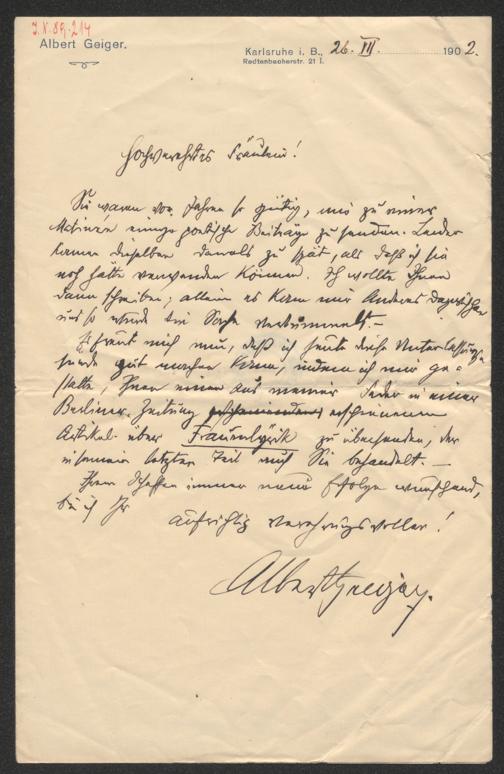 I.N. 89.214
Albert Geiger.
Karlsruhe i. B., 26. III. 1902.
Redtenbacherstr. 21 I.
Hochverehrtes Fräulein!
Sie waren vor Jahren so gütig, mir zu einer
Matinée einige poetische Beiträge zu senden. Leider
kamen dieselben damals zu spät, als daß ich sie
noch hätte verwenden können. Ich wollte Ihnen
dann schreiben; allein es kam mir Anderes dazwischen
und so wurde die Sache verbummelt. –
Es freut mich nun, daß ich heute diese Unterlassungs-
sünde gut machen kann, indem ich mir ge-
statte, Ihnen einen aus meiner Feder in einer
Berliner Zeitung erschienenen
Artikel über Frauenlyrik zu übersenden, der
in seinem letzten Teil auch Sie behandelt. –
Ihrem Schaffen immer neue Erfolge wünschend,
bin ich Ihr
aufrichtig verehrungsvoller!
Albert Geiger.